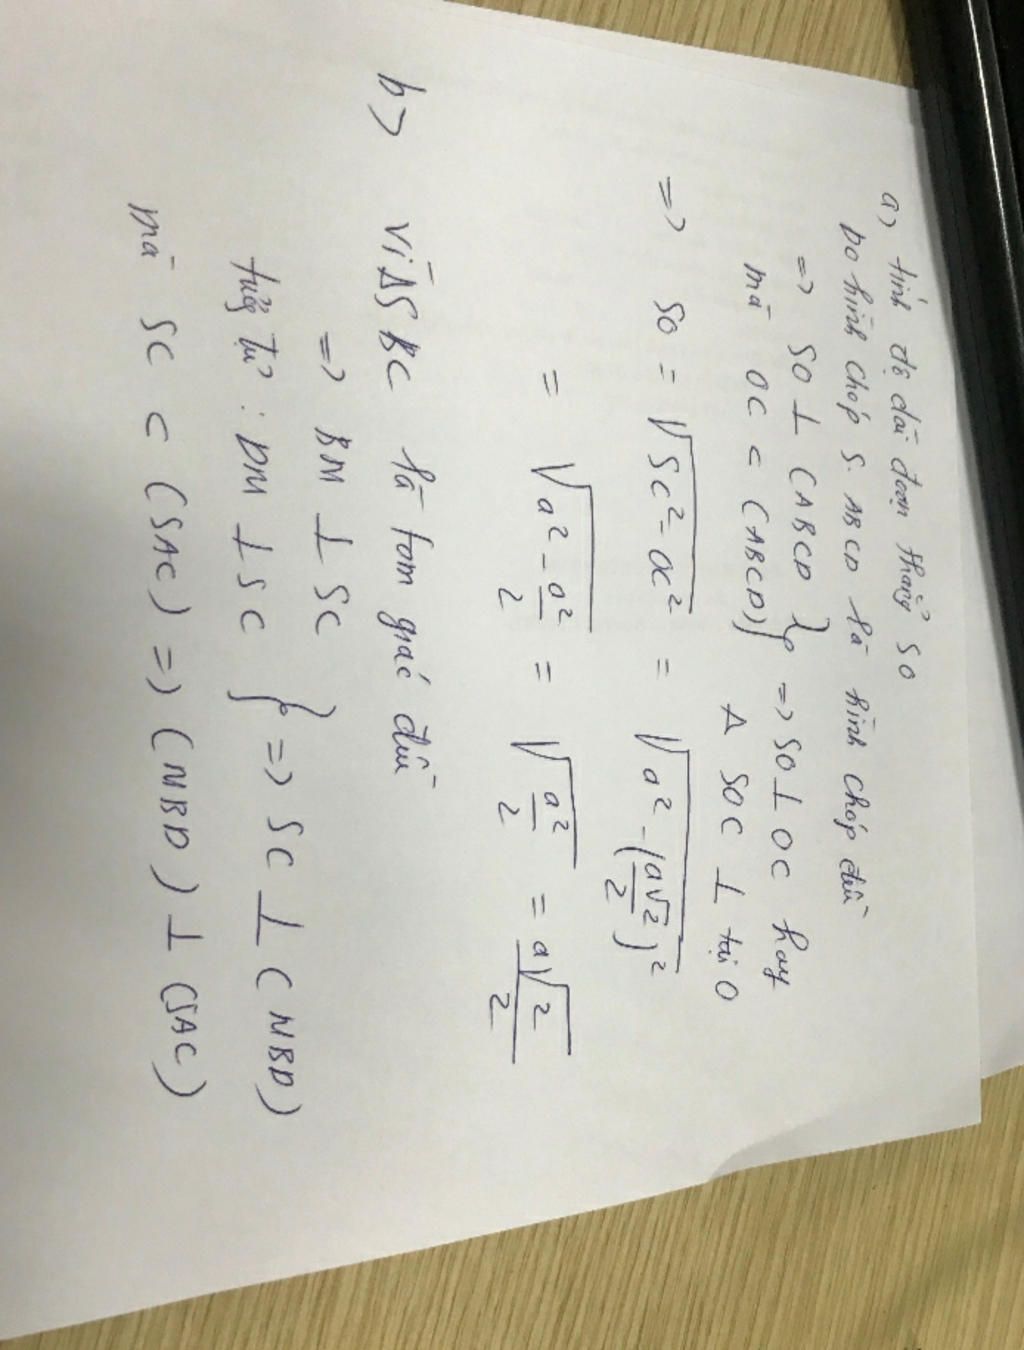 a) tính độ dài đoạn thẳng SO
Do hình chóp S.ABCD là hình chóp đều
=> SO ⊥ (ABCD) } => SO ⊥ OC hay
mà OC ⊂ (ABCD) } Δ SOC ⊥ tại O
=> SO = √(SC² - OC²) = √(a² - (a√2/2)²)
= √(a² - a²/2) = √(a²/2) = a√2/2
b) Vì ΔSBC là tam giác đều
=> BM ⊥ SC
tương tự : DM ⊥ SC } => SC ⊥ (MBD)
mà SC ⊂ (SAC) => (MBD) ⊥ (SAC)